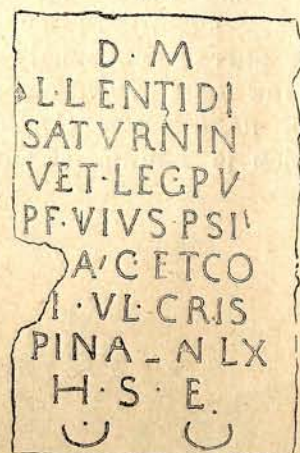 D · M
L · LENTIDI
SATVRNIN
VET · LEG · PV
PF · VIVS PSI
A C ETCO
I · VL · CRIS
PINA N LX
H · S · E